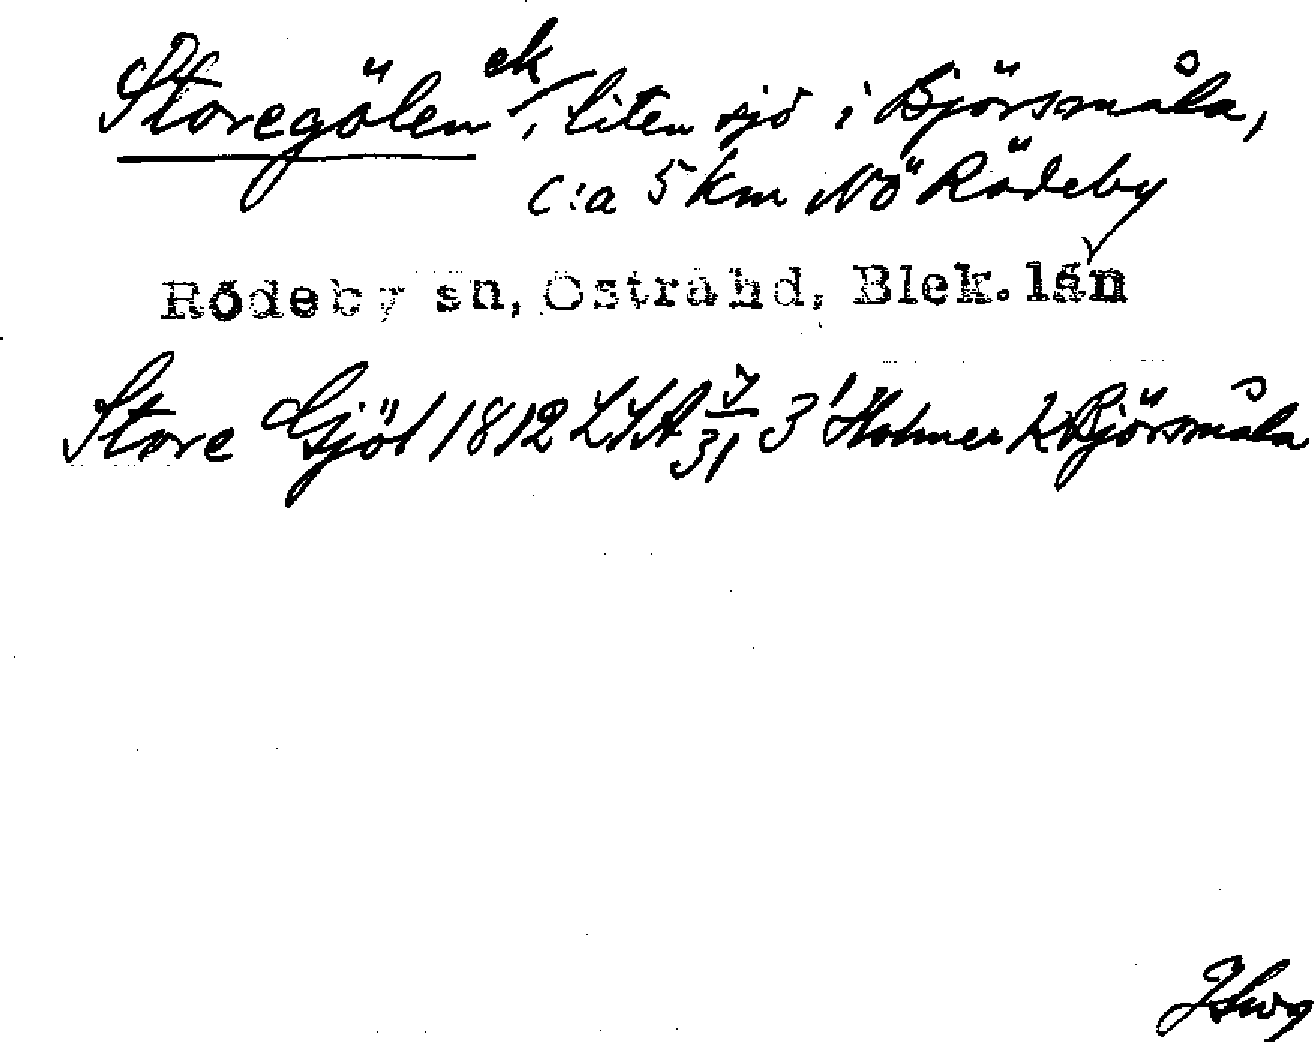 Storegölen ek, liten sjö i Björsmåla,
c:a 5 km NÖ Rödeby
Rödeby sn, Östra hd, Blek. län
Store Gjöl 1812 LSA 7/31 3 Björsmåla